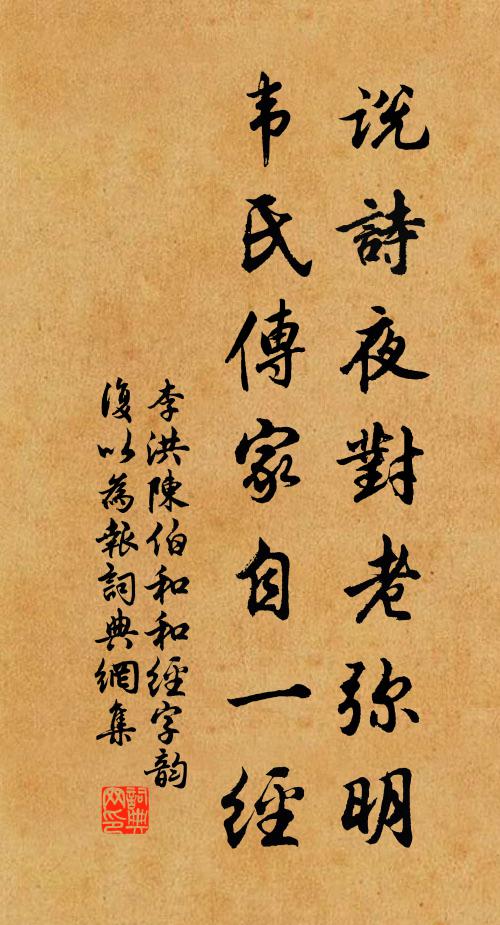 说詩夜對老弥明
韦氏傳家自一經
李洪陳伯和和經字韵
復以為報詞典網集
詞典網印